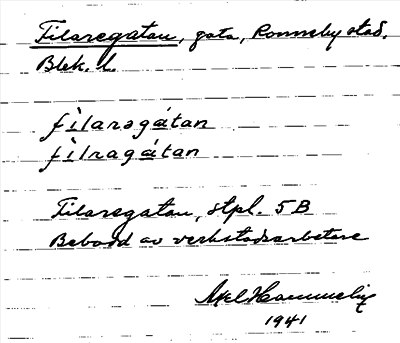 Filaregatan, gata, Ronneby stad.
Blek. l.
fìlaregátan
fìlragátan
Filaregatan, stpl. 5 B
Bebodd av verkstadsarbetare
Axel
1941